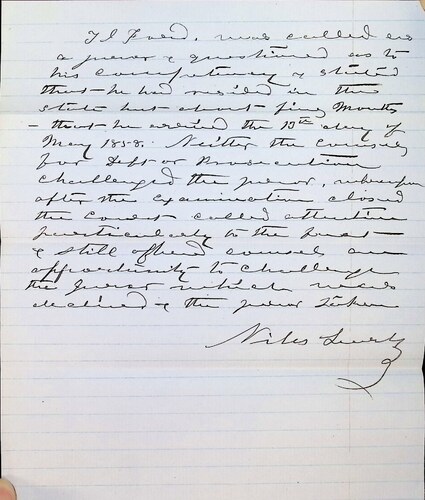 T J Ford, was called as
a juror & questioned as to
his competency & stated
that he had resided in this
state but about five Months
- that he arrived the 13th day of
May 1858. Neither the counsel
for Deft or Prosecution
challenged the juror, whereupon
after the examination closed
the Court called attention
particularly to the fact
& still offered counsel an
opportunity to challenge
the Juror which was
declined & the juror taken
Niles